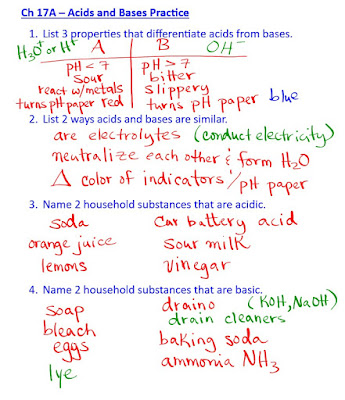 Ch 17A – Acids and Bases Practice
1. List 3 properties that differentiate acids from bases.
H3O+ or H+ A B OH-
pH < 7 pH > 7
sour bitter
react w/metals slippery
turns pH paper red turns pH paper blue
2. List 2 ways acids and bases are similar.
are electrolytes (conduct electricity)
neutralize each other & form H2O
Δ color of indicators/pH paper
3. Name 2 household substances that are acidic.
soda Car battery acid
orange juice sour milk
lemons vinegar
4. Name 2 household substances that are basic.
soap draino (KOH, NaOH)
bleach drain cleaners
eggs baking soda
lye ammonia NH3